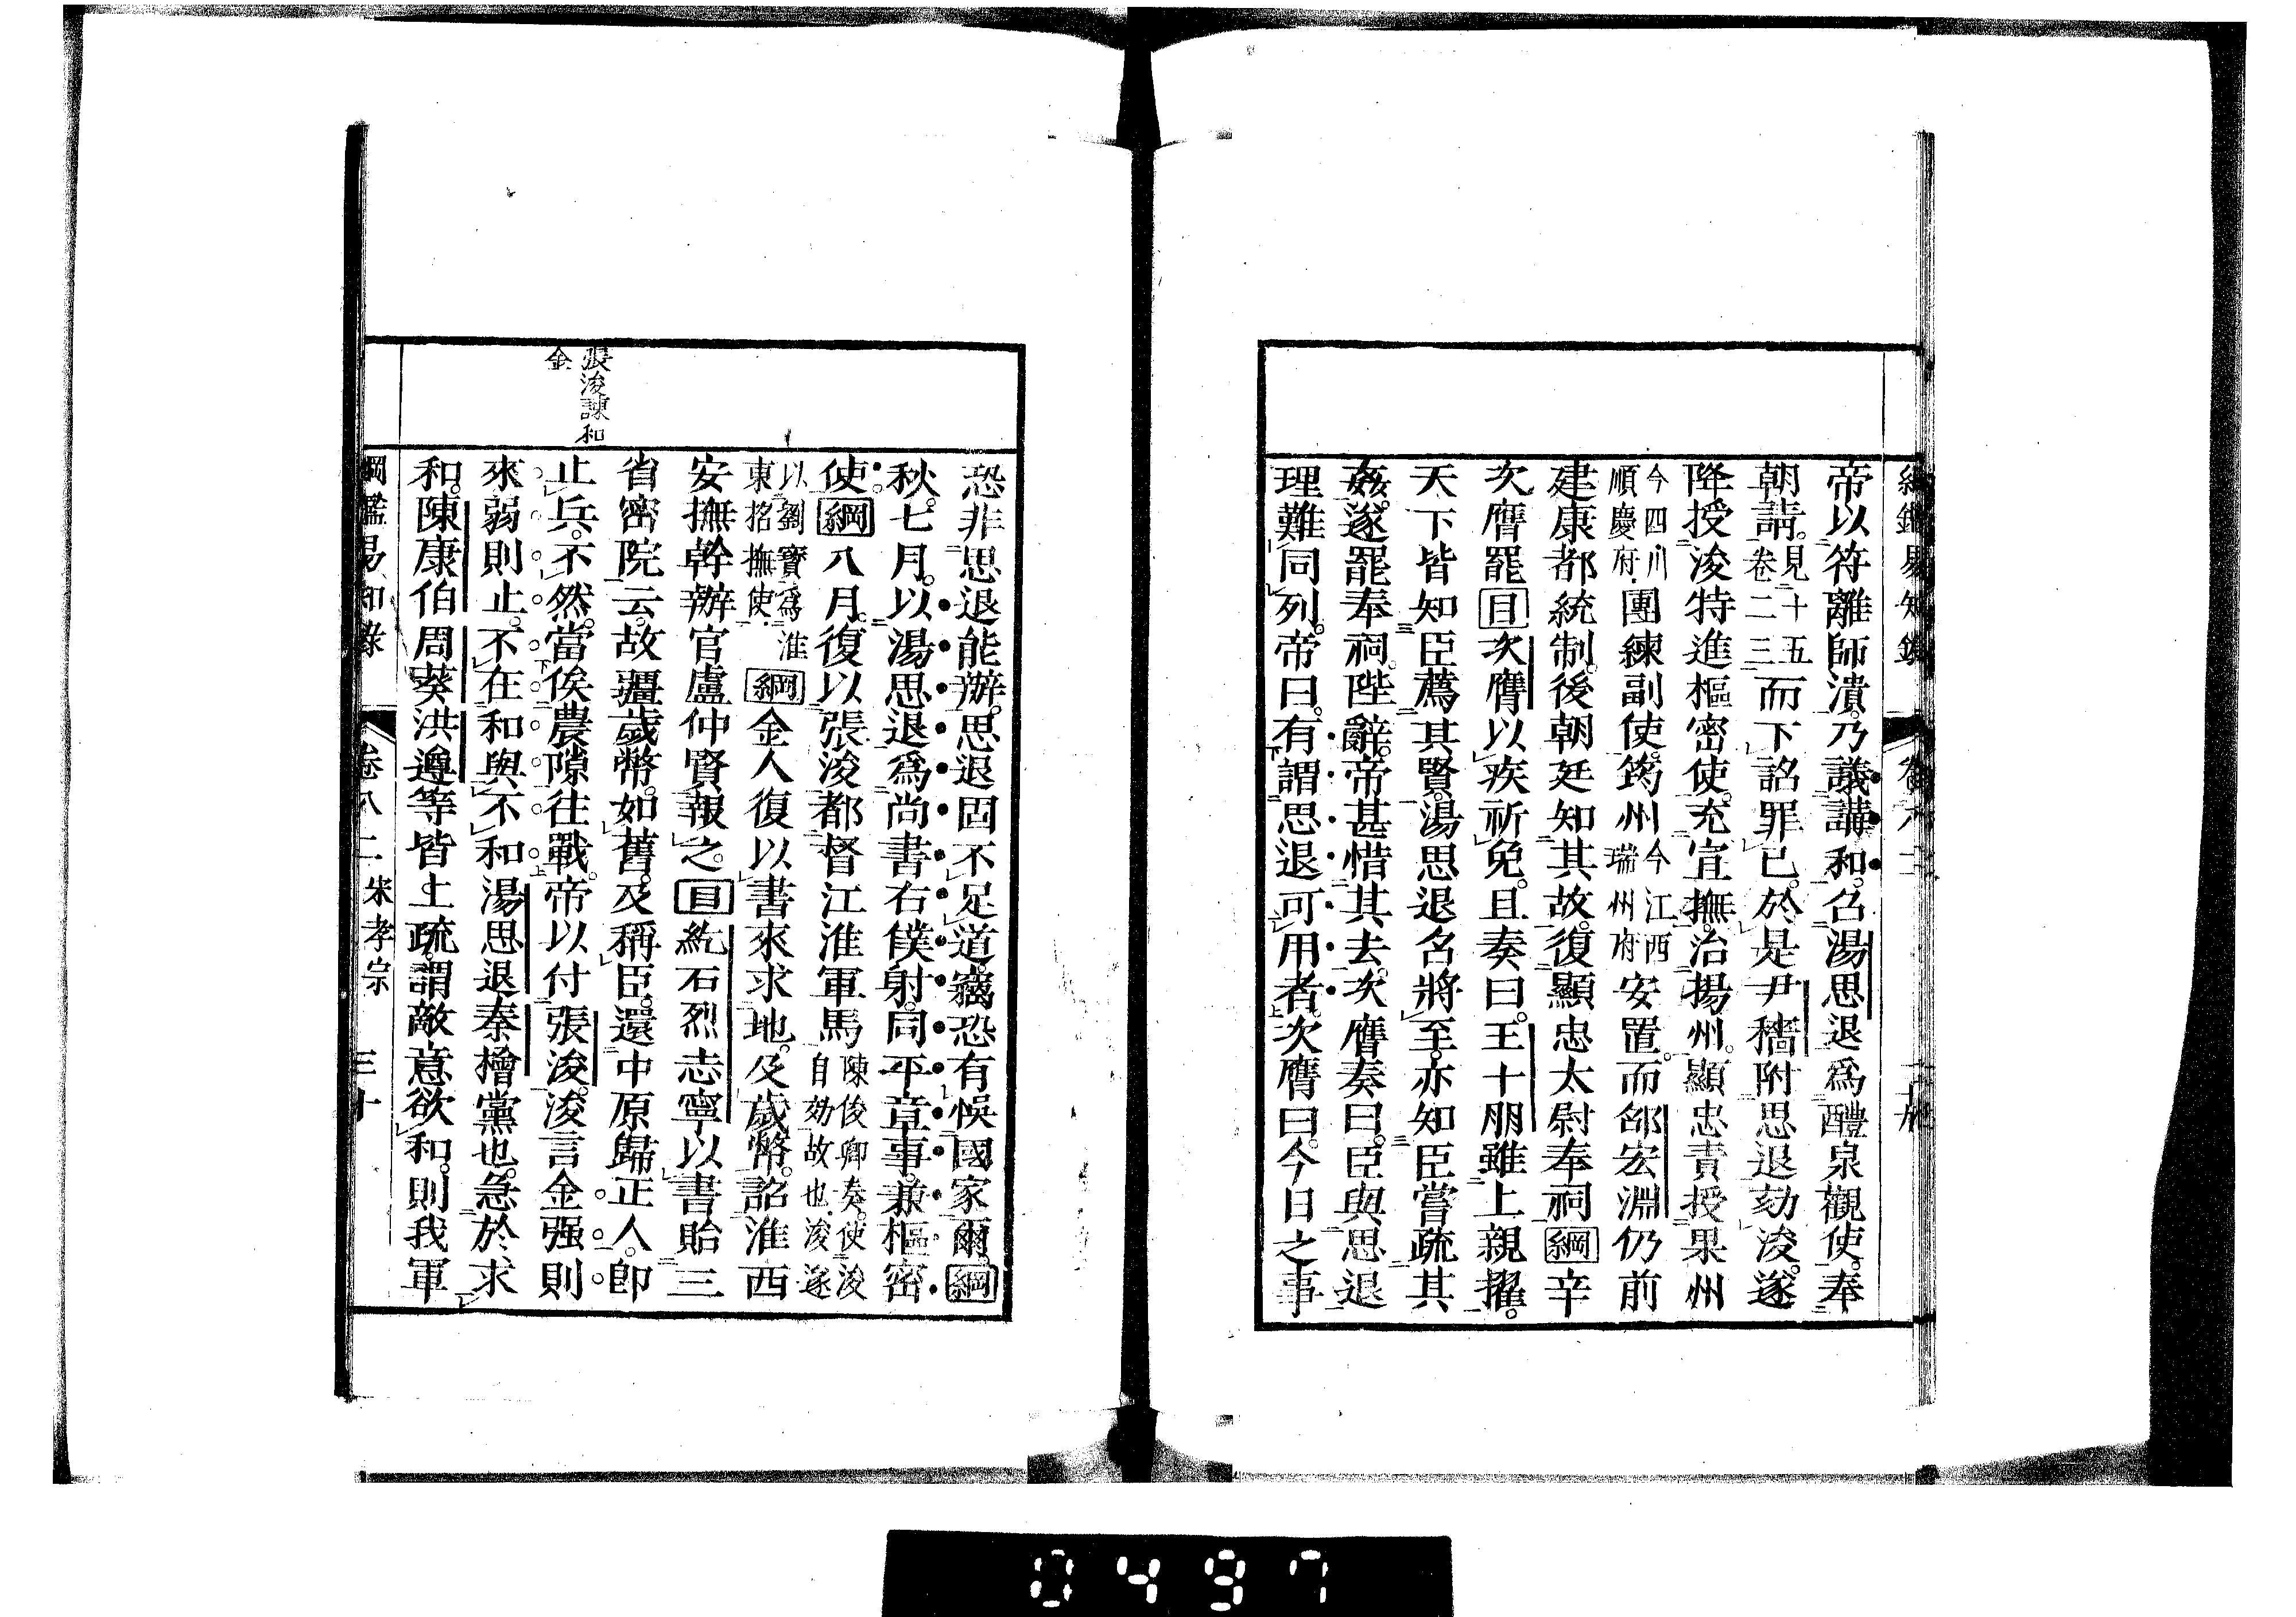 帝以符離師潰。乃議講和。召湯思退爲醴泉觀使。奉
朝請。見十五卷二三而下詔罪已。於是尹穡附思退劾浚。遂
降授浚特進樞密使。充宣撫。治揚州。顯忠責授果州
今四川順慶府。團練副使。筠州今江西瑞州府安置。而邵宏淵仍前
建康都統制。後朝廷知其故。復顯忠太尉奉祠綱辛
次膺罷目次膺以疾祈免。且奏曰。王十朋雖上親擢。
天下皆知臣薦其賢。湯思退召將至。亦知臣嘗疏其
姦。遂罷奉祠。陛辭。帝甚惜其去。次膺奏曰。臣與思退
理難同列。帝曰。有謂思退可用者。次膺曰。今日之事
恐非思退能辦。思退固不足道。竊恐有悞國家爾。綱
秋。七月。以湯思退爲尚書右僕射。同平章事。兼樞密
使。綱八月。復以張浚都督江淮軍馬陳俊卿奏。使浚自効故也。浚遂
以劉寶爲淮東招撫使。綱金人復以書來求地。及歲幣。詔淮西
安撫幹辦官盧仲賢報之。目紇石烈志寧以書貽三
省密院云。故疆歲幣。如舊。及稱臣。還中原歸正人。卽
止兵。不然。當俟農隙往戰。帝以付張浚。浚言金强則
來。弱則止。不在和與不和湯思退秦檜黨也。急於求
和。陳康伯周葵洪遵等皆上疏。謂敵意欲和。則我軍
張浚諫和
金
綱鑑易知錄 卷八二 宋孝宗 三十
0497